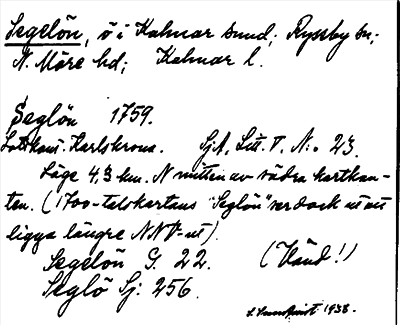 Segelön, ö i Kalmar sund; Ryssby sn;
N. Möre hd; Kalmar l.
Seglön 1759.
Lotskont. Karlskrona. SjA, Litt. T. N:o 23.
Läge 4,3 km. N mitten av södra kartkan-
ten. (1700-talskartans "Seglön" ser dock ut att
ligga längre NNV-ut).
Segelön G. 22. (Vänd!)
Seglö Sj: 256.
1938.